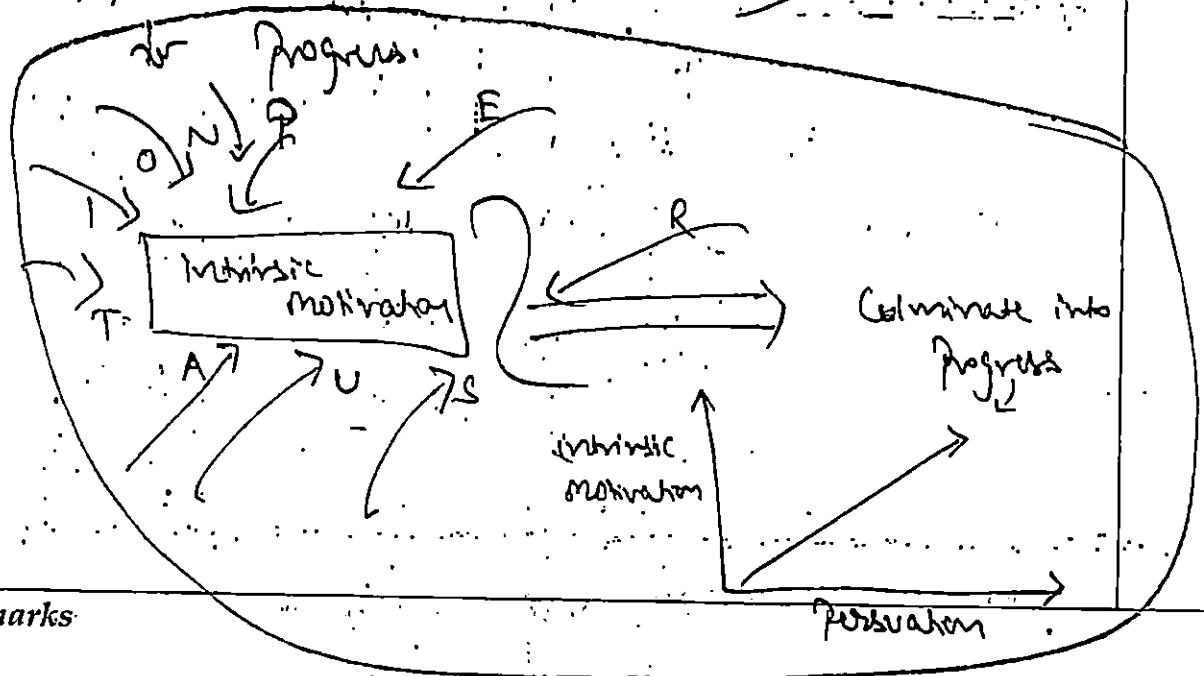 for Progress.
E
P
N
O
I
R
Intrinsic
Motivation
Culminate into
Progress
T
A
U
S
intrinsic
motivation
Persuation
marks